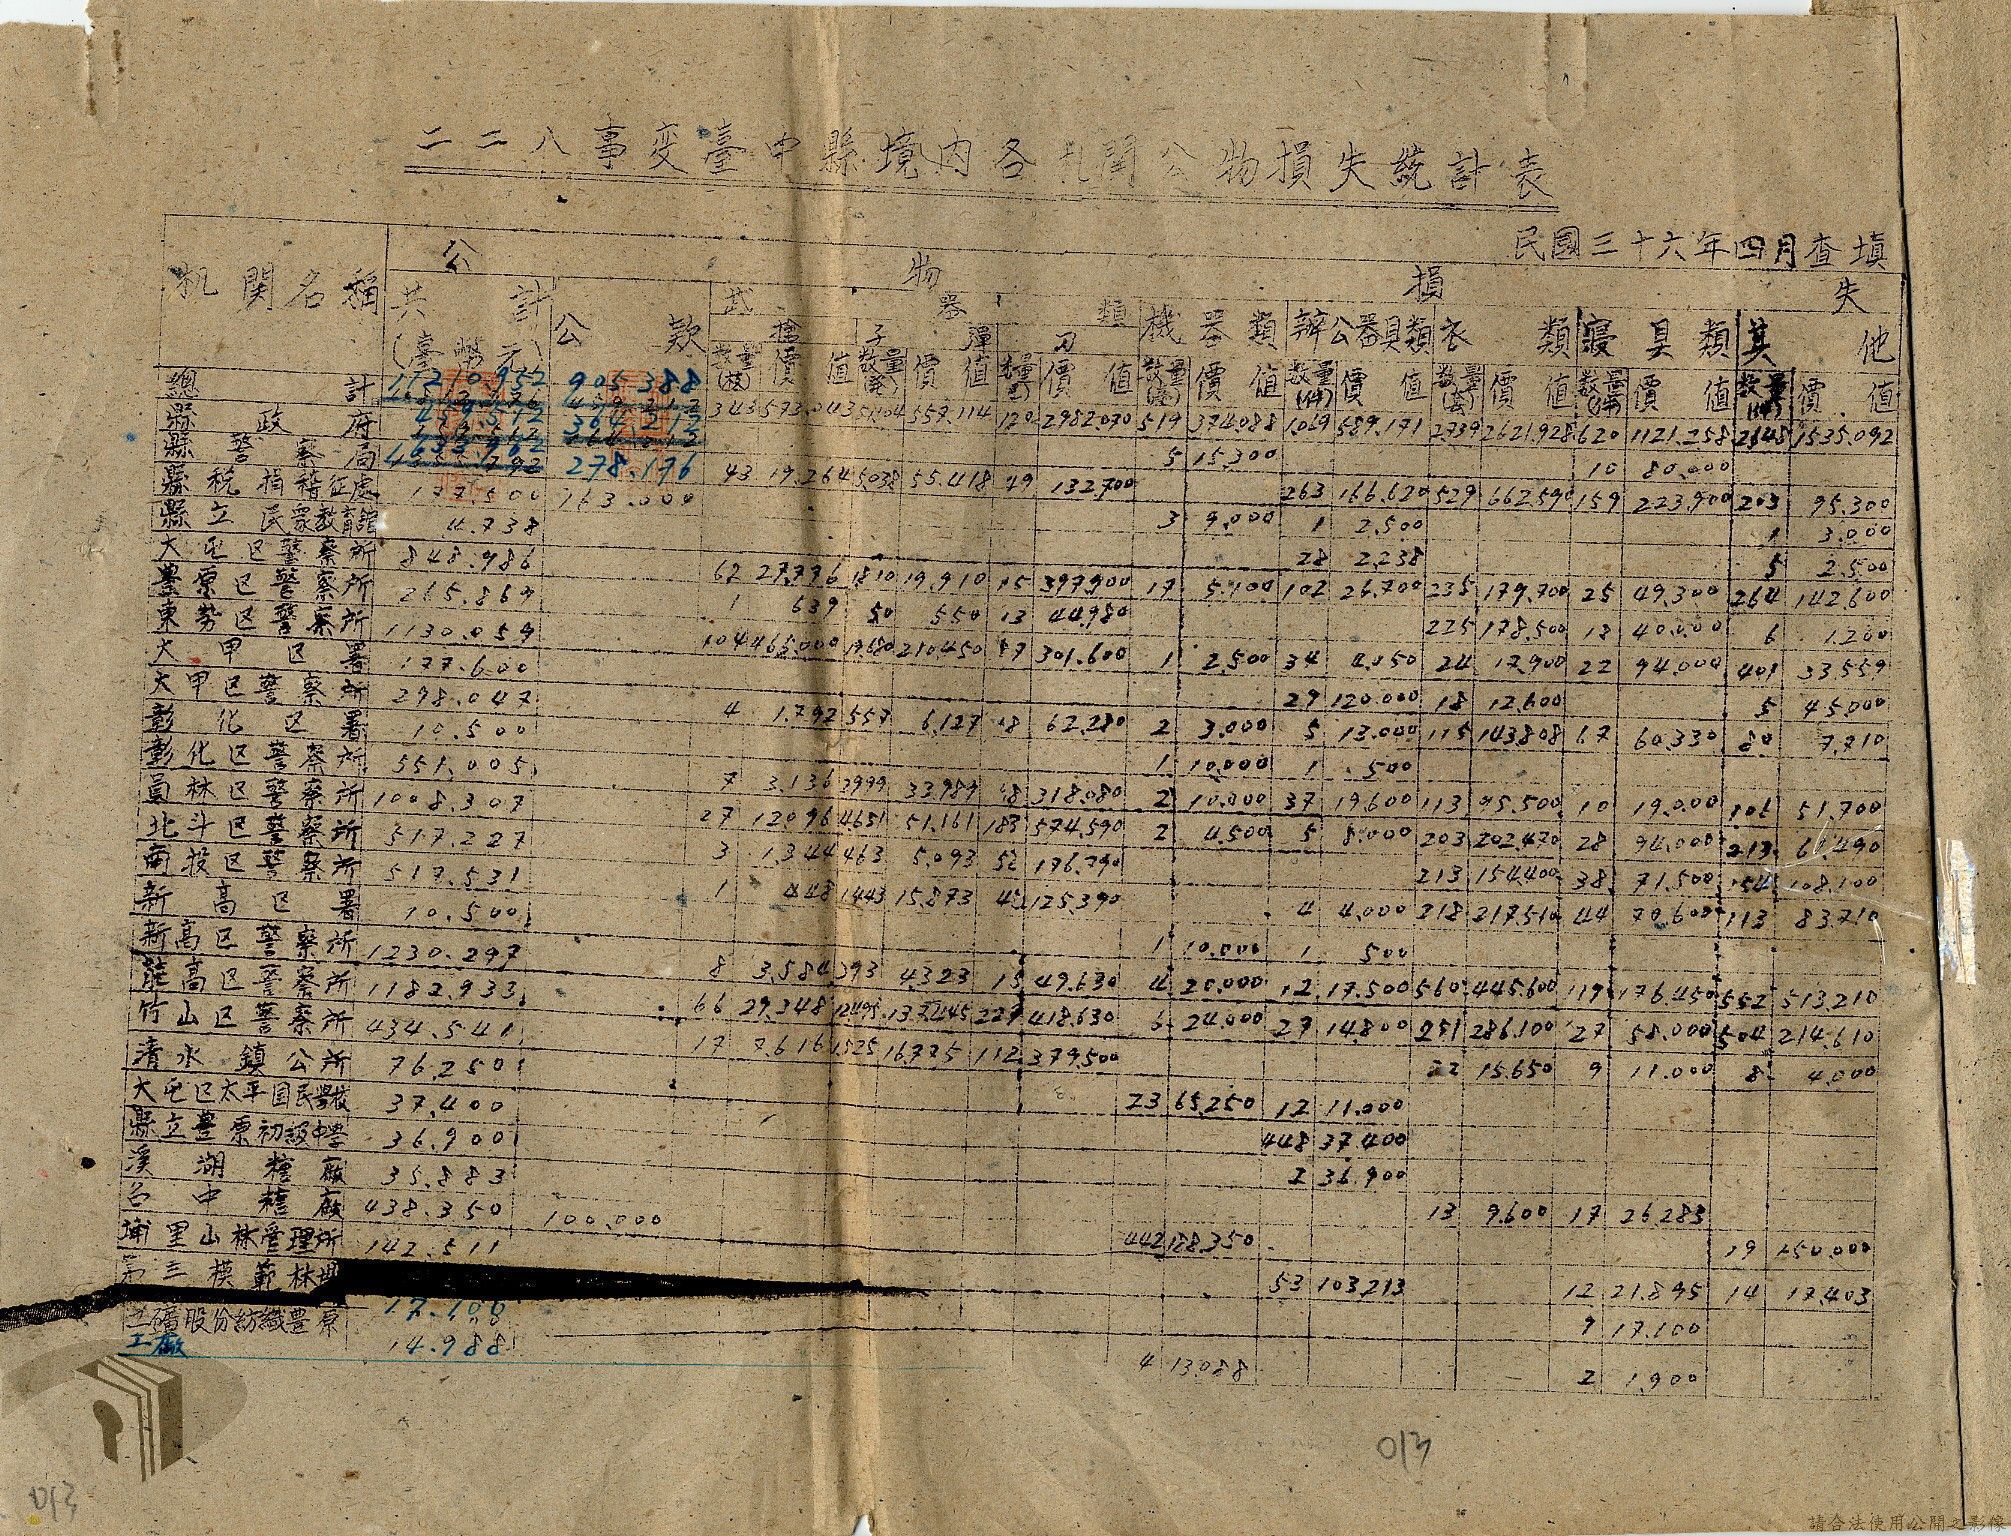 二二八事変臺中縣境內各机関公物損失統計表
民國三十六年四月查填
机関名稱 公物損失
共計(臺幣元) 公款 武器類 機器類 辦公器具類 衣類 寝具類 其他
槍 子彈 刀
數量(枝) 價值 數量 價值 數量 價值 數量 價值 數量(件) 價值 數量(套) 價值 數量(件) 價值 數量(件) 價值
總計 11210.952 905.388 343 573.043 557.114 120 2982.070 519 374.088 1,069 589.171 2739 2621.928 620 1121.258 2648 1535.092
縣政府 459.512 364.212 5 15.300 10 80.000
縣警察局 278.176 43 19.264 5,038 55.418 132.700 263 166.620 529 662.590 159 223.900 203 95.300
縣稅捐稽征處 177.500 163.000 3 9.000 1 2.500 1 3.000
縣立民衆教育館 4.738 28 2.238 5 2.500
大屯区警察所 848.986 62 27.776 1810 19.910 397.900 17 5.100 102 26.700 235 179.700 25 49.300 264 142.600
豊原区警察所 265.869 1 639 50 550 13 44.980 225 178.500 18 40.000 6 1.200
東势区警察所 1130.059 104 465.000 19,680 210.450 301.600 1 2.500 34 4.050 24 17.900 22 94.000 401 33.559
大甲区署 177.600 29 120.000 18 12.600 5 45.000
大甲区警察所 298.047 4 1.792 557 6.127 18 62.280 2 3.000 5 13.000 115 143.808 67 60.330 80 7.710
彰化区署 10.500 1 10.000 1 .500
彰化区警察所 551.005 7 3.136 3999 33.989 318.080 2 10.000 37 19.600 113 95.500 10 19.000 106 51.700
員林区警察所 1008.307 27 12.096 4651 51.161 183 574.590 2 4.500 5 8.000 203 202.470 28 94.000 213 61.490
北斗区警察所 517.227 3 1.344 463 5.093 52 176.790 213 154.400 38 71.500 154 108.100
南投区警察所 517.531 1 448 1443 15.873 125.390 4 4.000 218 217.510 44 70.600 113 83.710
新高区署 10.500 1 10.000 1 500
新高区警察所 1230.297 8 3.584 393 4.323 15 49.630 4 20.000 12 17.500 560 445.600 119 176.450 552 513.210
能高区警察所 1182.933 66 29.348 12495 137.445 227 418.630 6 24.000 27 14.800 251 286.100 27 58.000 504 214.610
竹山区警察所 434.541 17 7.616 1525 16.775 112 379.500 22 15.650 9 11.000 8 4.000
清水鎮公所 76.250 23 65.250 12 11.000
大屯区太平国民學校 37.400 448 37.400
縣立豊原初級中學 36.900 2 36.900
溪湖糖廠 35.883 13 9.600 17 26.283
台中糖廠 438.350 100.000 442 188.350 19 150.000
埔里山林管理所 142.511 53 103.213 12 21.895 14 17.403
第三模範林塲 17.100 9 17.100
工礦股份紡織豊原
工廠 14.988 4 13.088 2 1.900
013
013
請合法使用公開之影像